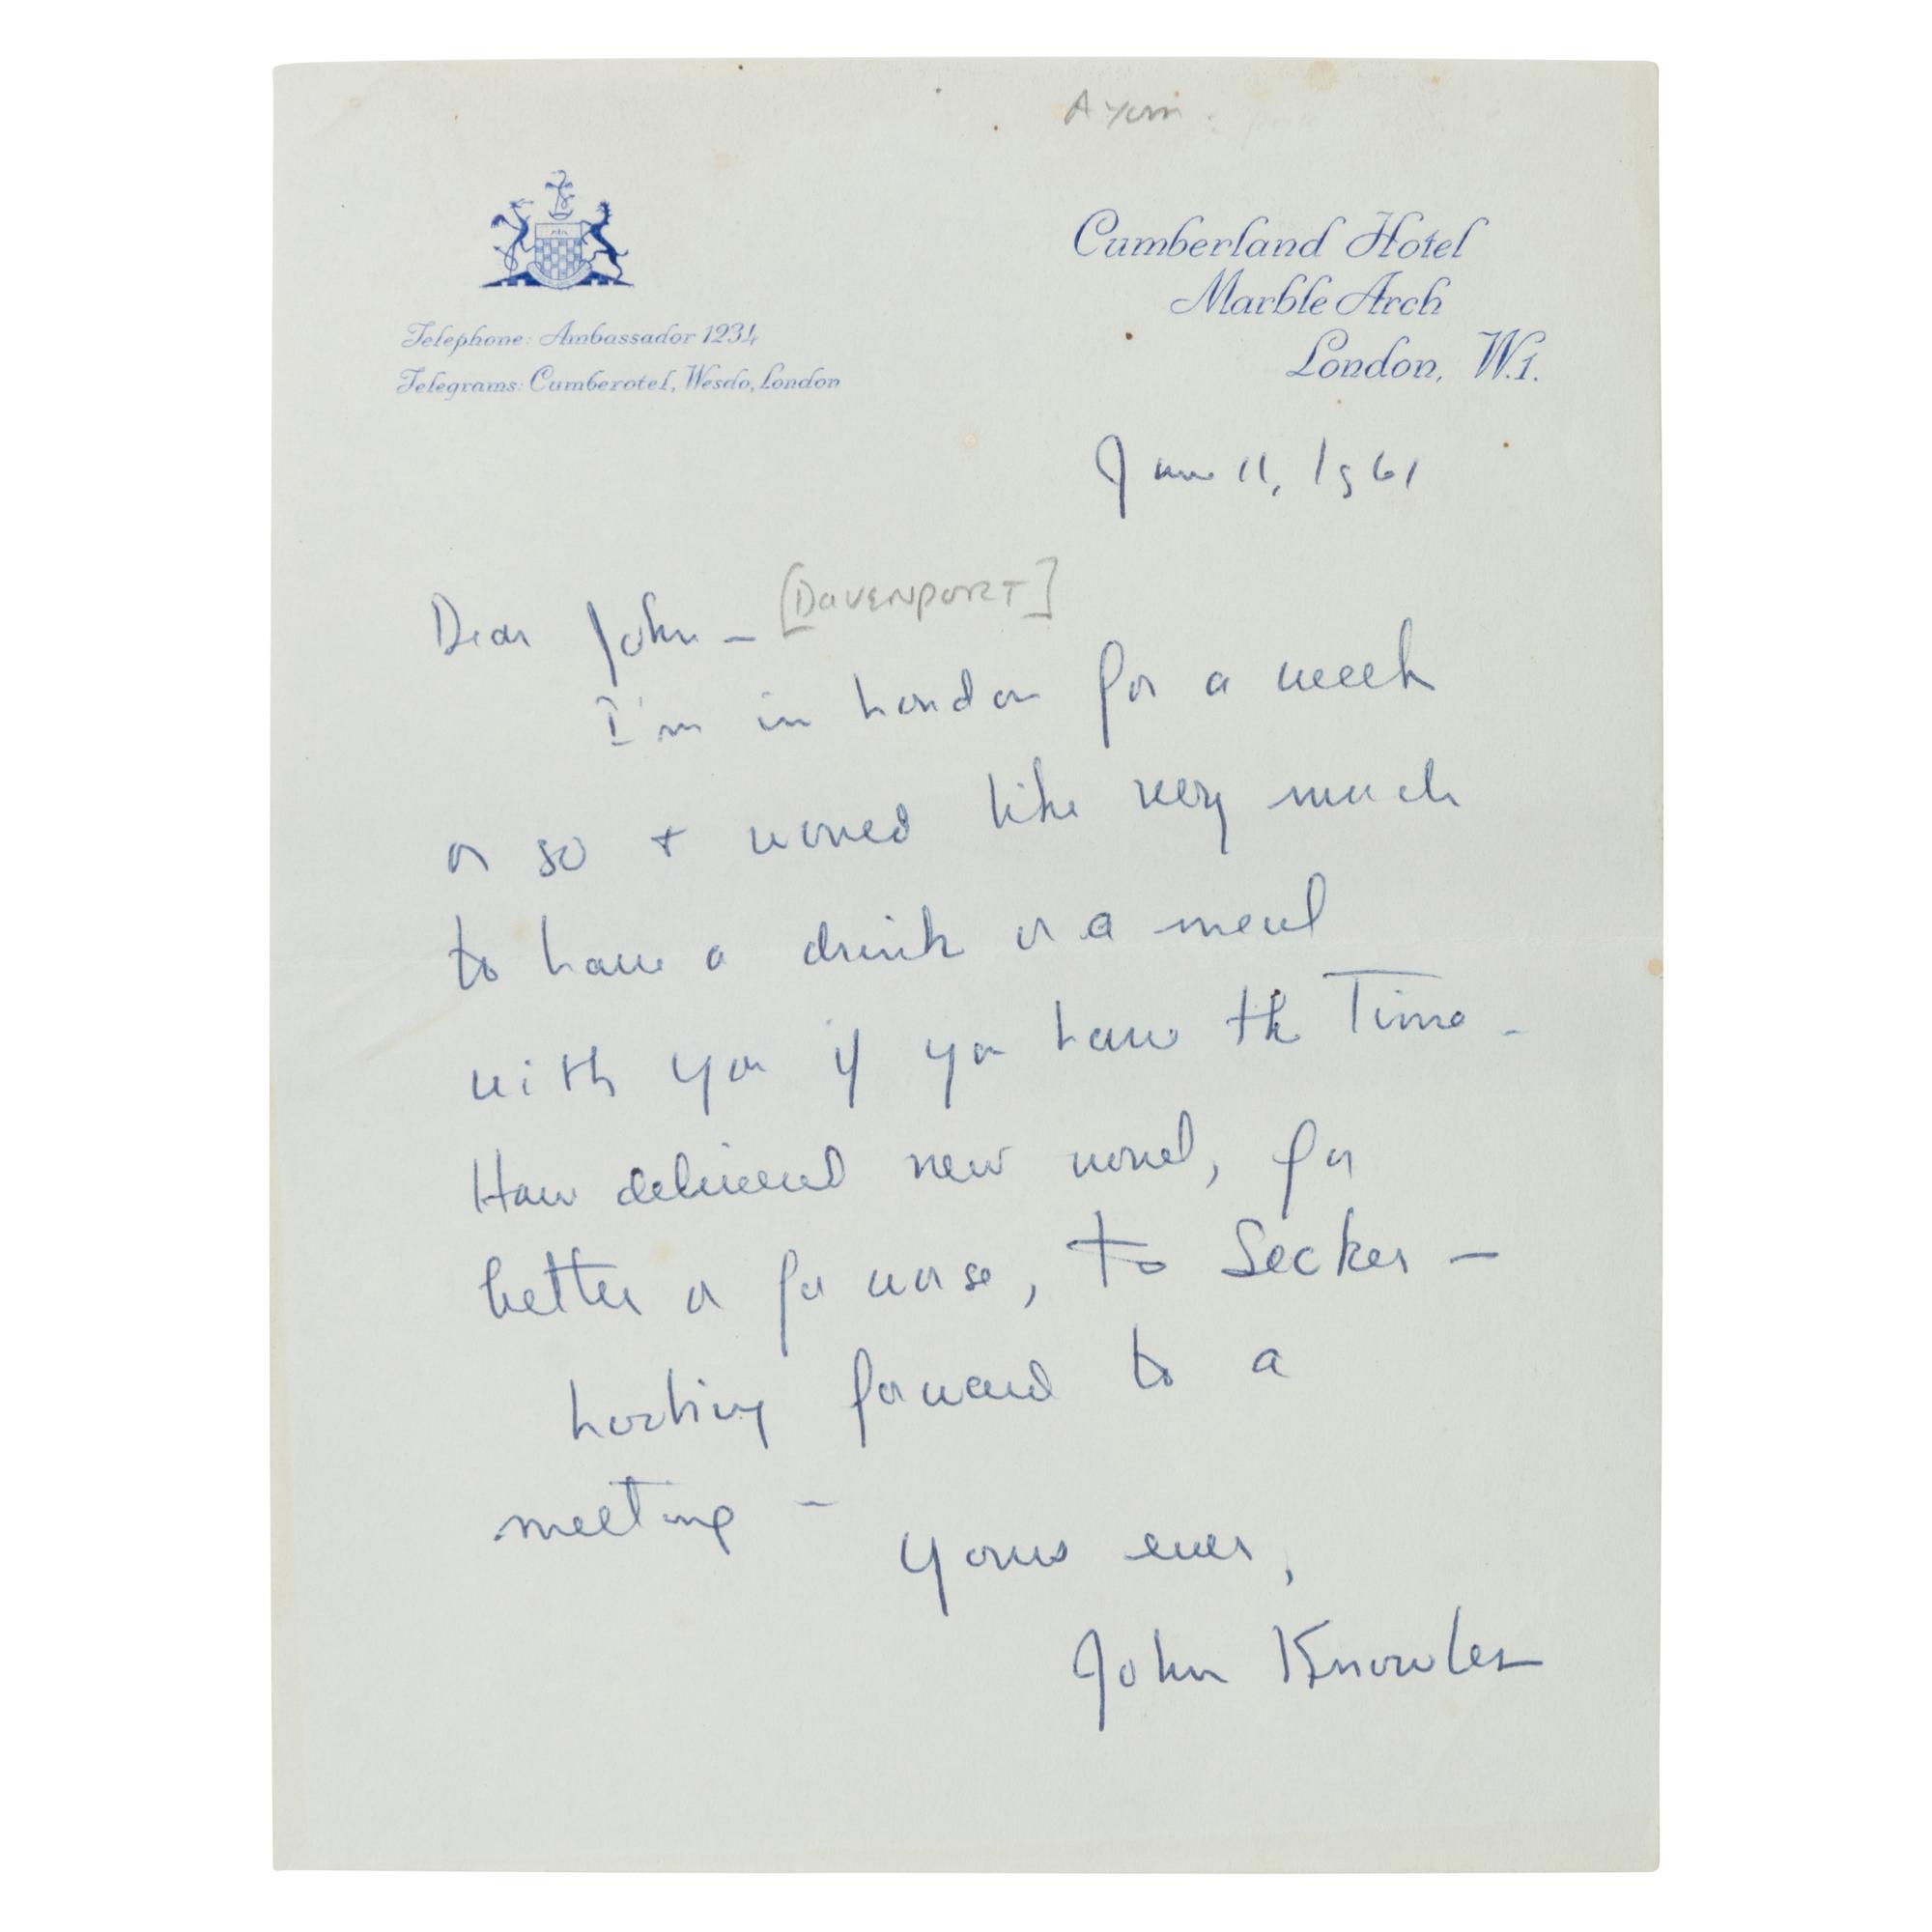 Cumberland Hotel
Marble Arch
London, W.1.
Telephone: Ambassador 1234
Telegrams: Cumberotel, Wesdo, London
June 11, 1961
Dear John — [DAVENPORT]
I'm in London for a week
or so + would like very much
to have a drink or a meal
with you if you have the Time —
Have delivered new novel, for
better or for worse, to Secker —
Looking forward to a
meeting —
Yours ever,
John Knowles